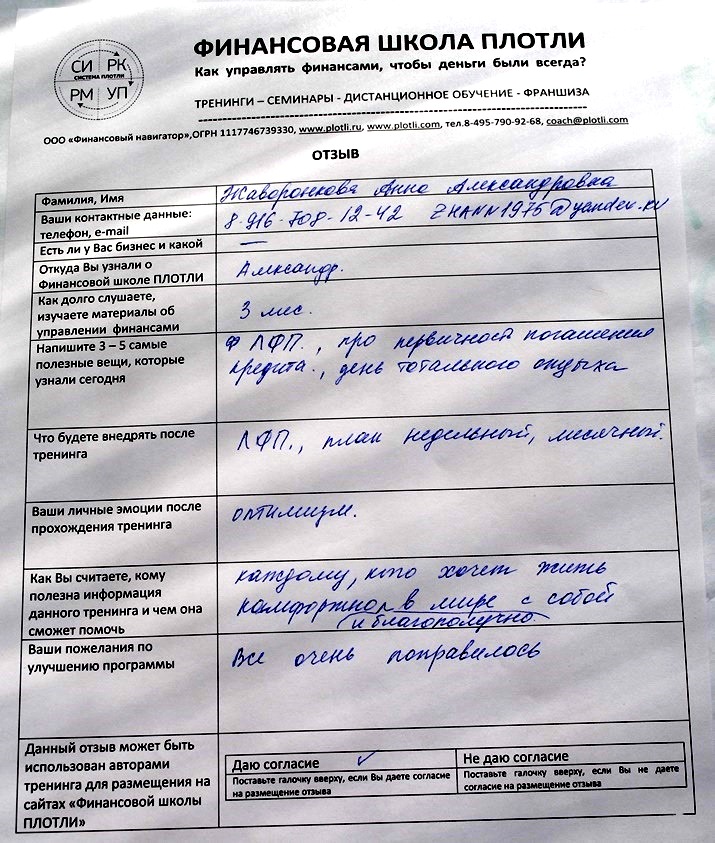 СИ РК
СИСТЕМА ПЛОТЛИ
РМ УП
ФИНАНСОВАЯ ШКОЛА ПЛОТЛИ
Как управлять финансами, чтобы деньги были всегда?
ТРЕНИНГИ – СЕМИНАРЫ - ДИСТАНЦИОННОЕ ОБУЧЕНИЕ - ФРАНШИЗА
ООО «Финансовый навигатор»,ОГРН 1117746739330, www.plotli.ru, www.plotli.com, тел.8-495-790-92-68, coach@plotli.com
ОТЗЫВ
Фамилия, Имя
Жаворонкова Анна Александровна
Ваши контактные данные:
телефон, e-mail
8-916-708-12-42 ZHANN1975@yandex.ru
Есть ли у Вас бизнес и какой
—
Откуда Вы узнали о
Финансовой школе ПЛОТЛИ
Александр.
Как долго слушаете,
изучаете материалы об
управлении финансами
3 мес.
Напишите 3 – 5 самые
полезные вещи, которые
узнали сегодня
ЛФП., про первичность погашения
кредита., день тотального отдыха
Что будете внедрять после
тренинга
ЛФП., план недельный, месячный.
Ваши личные эмоции после
прохождения тренинга
оптимизм.
Как Вы считаете, кому
полезна информация
данного тренинга и чем она
сможет помочь
каждому, кто хочет жить
комфортно в мире с собой
и благополучно.
Ваши пожелания по
улучшению программы
Все очень понравилось
Данный отзыв может быть
использован авторами
тренинга для размещения на
сайтах «Финансовой школы
ПЛОТЛИ»
Даю согласие ✓
Поставьте галочку вверху, если Вы даете согласие
на размещение отзыва
Не даю согласие
Поставьте галочку вверху, если Вы не даете
согласие на размещение отзыва